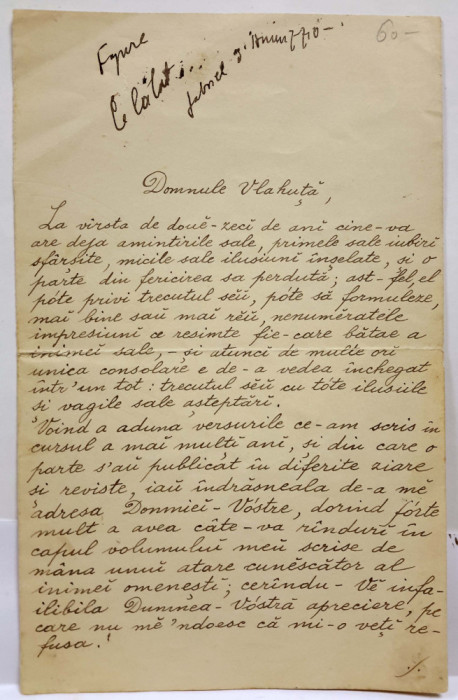 60-
Gabriel d'Annunzzio-.
Domnule Vlahuţă,
La virsta de douĕ-zeci de anĭ cine-va
are deja amintirile sale, primele sale iubirĭ
sfârşite, micile sale ilusiunĭ înşelate, şi o
parte din fericirea sa perdută; ast-fel, el
póte privi trecutul sĕŭ, póte să formuleze,
maĭ bine saŭ maĭ rĕŭ, nenumĕratele
impresiunĭ ce resimte fie-care bătae a
inimeĭ sale, - şi atuncĭ de multe orĭ
unica consolare e de-a vedea închegat
într'un tot: trecutul sĕŭ cu tóte ilusiile
şi vagile sale aşteptărĭ.
Voind a aduna versurile ce-am scris în
cursul a maĭ mulţĭ anĭ, şi din care o
parte s'aŭ publicat în diferite ziare
şi reviste, iaŭ îndrăsneala de-a mĕ
adresa Domnieĭ-Vóstre, dorind fórte
mult a avea câte-va rîndurĭ în
capul volumuluĭ meŭ scrise de
mâna unuĭ atare cunĕscător al
inimeĭ omeneştĭ; cerîndu-Vĕ infa-
ilibila Dumnea-Vóstră apreciere, pe
care nu mĕ 'ndoesc că mi-o veţĭ re-
fusa.
./.